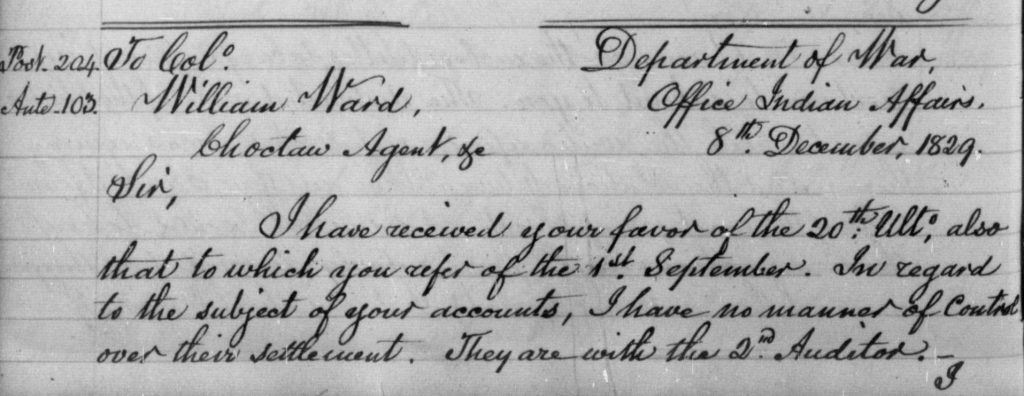 Post. 204. To Colo. Department of War,
Ante. 103. William Ward, Office Indian Affairs.
Choctaw Agent, &c 8th. December, 1829.
Sir,
I have received your favor of the 20th. Ulto, also
that to which you refer of the 1st. September. In regard
to the subject of your accounts, I have no manner of Control
over their settlement. They are with the 2nd. Auditor. —
I